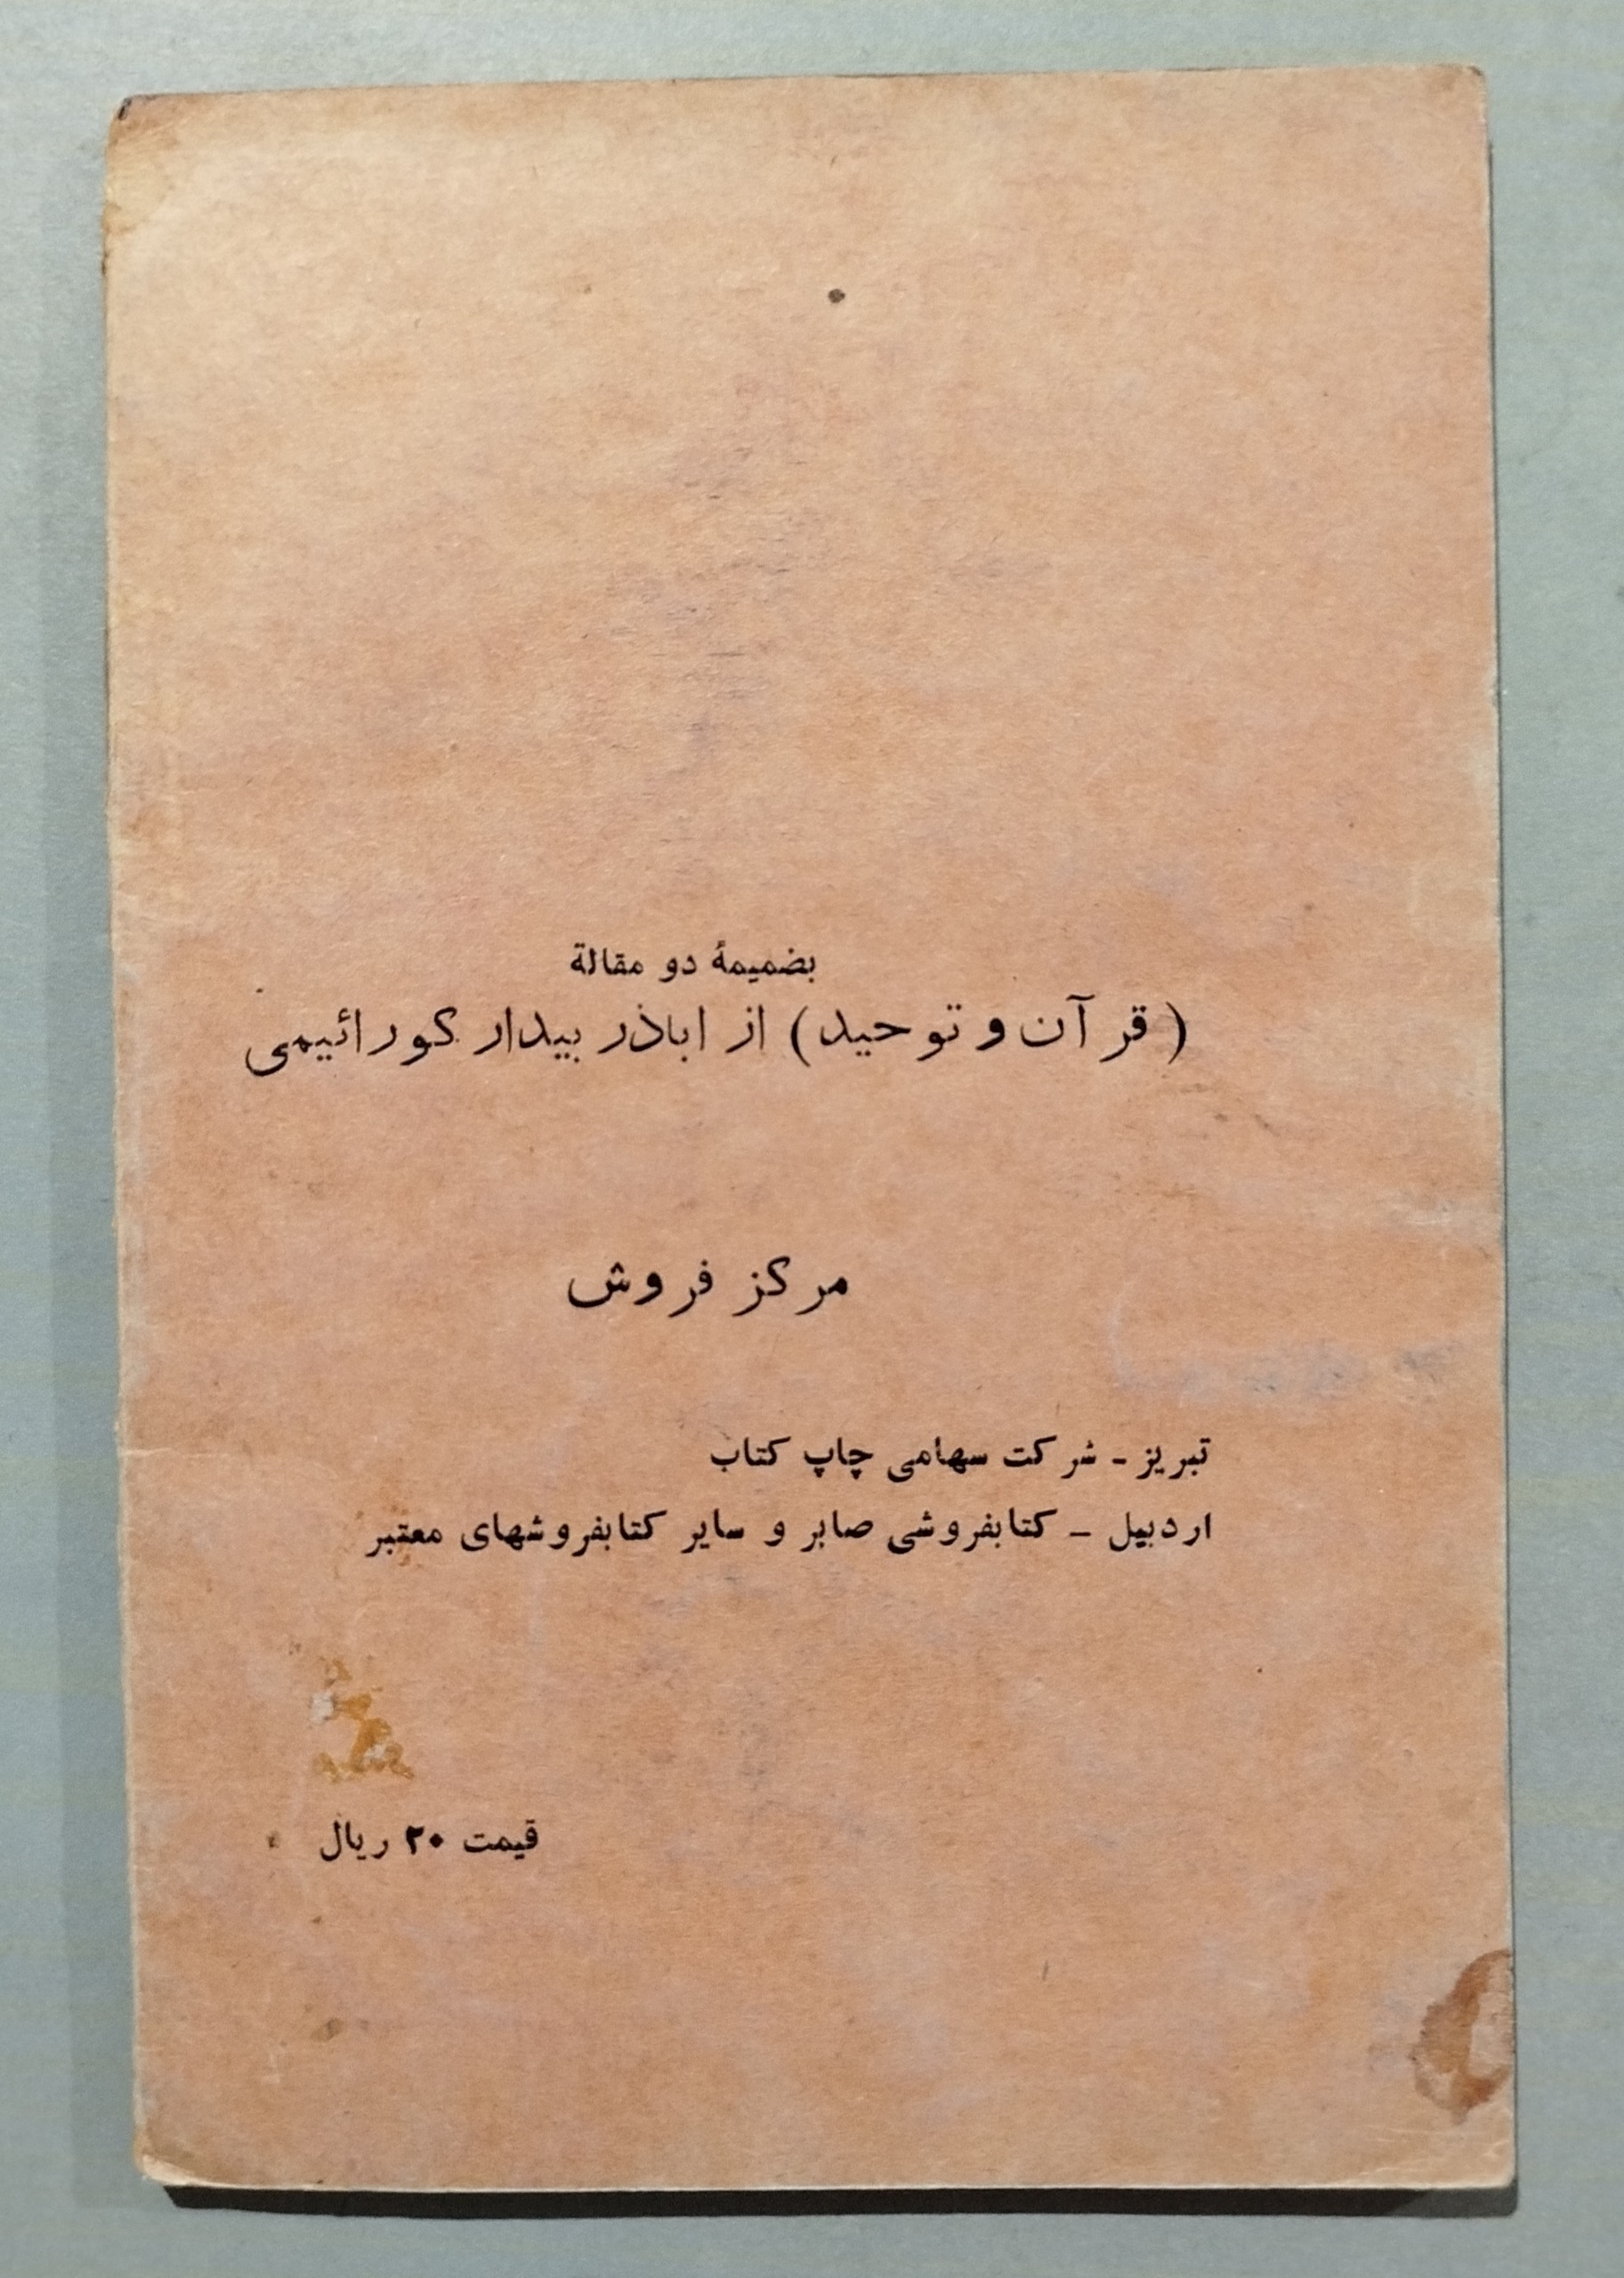 بضمیمهٔ دو مقالة
(قرآن و توحید) از اباذر بیدار کورائیمی
مرکز فروش
تبریز - شرکت سهامی چاپ کتاب
اردبیل - کتابفروشی صابر و سایر کتابفروشهای معتبر
قیمت ۲۰ ریال